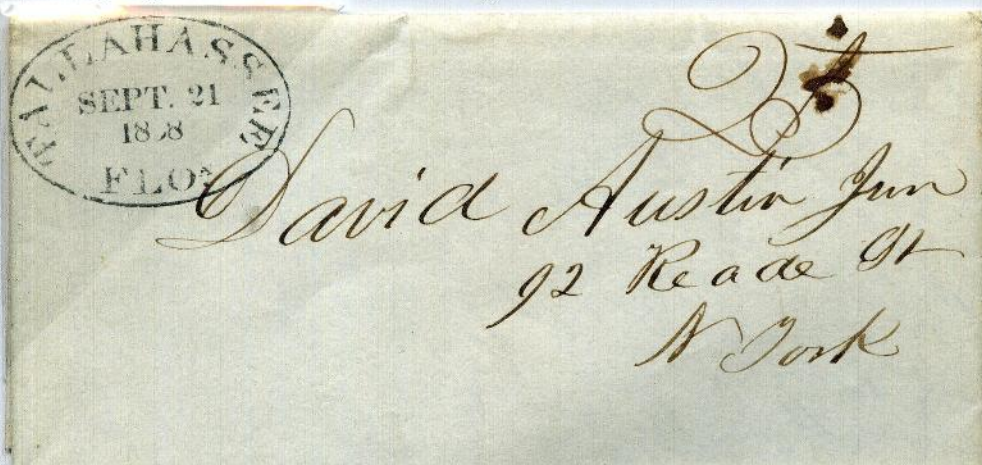 TALLAHASSEE
SEPT. 21
18 8
FLO
25
David Austin Jun
92 Reade St
N York